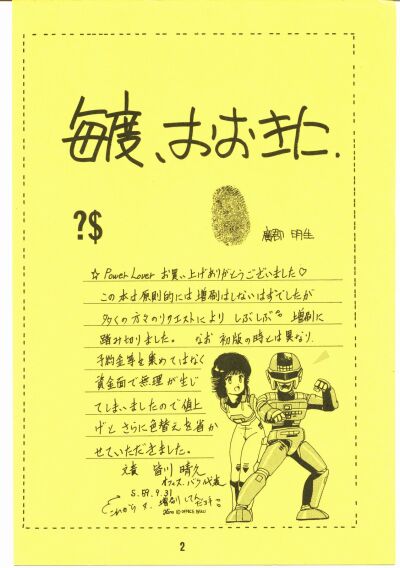 毎度、おおきに.
?$
廣郡 明生
☆ Power Lover お買い上げありがとうございました♡
この本は原則的には増刷はしないはずでしたが
多くの方々のリクエストにより しぶしぶ 増刷に
踏み切りました。 なお 初版の時とは異なり、
予約金等を集めてはなく
資金面で無理が生じ
てしまいましたので値上
げと さらに色替えを省か
せていただきました。
文責 皆川 晴久
オフィス・バウ代表
S.59.9.31
これから 増刷してん
© OFFICE BAU
2